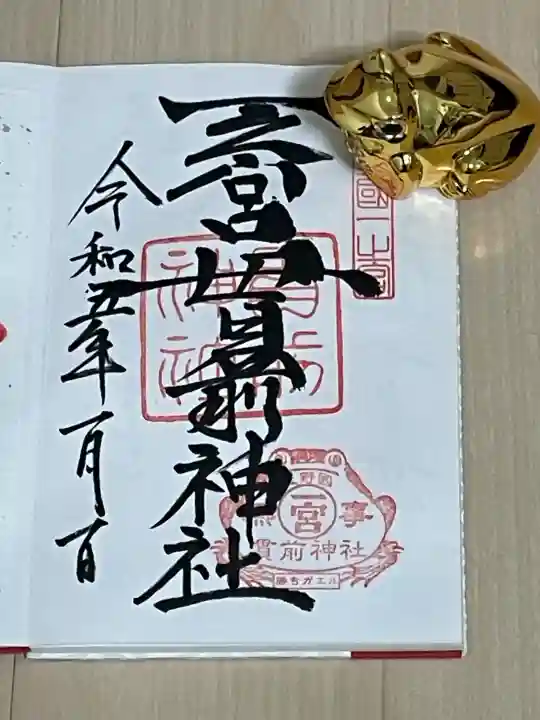 一之宮貫前神社
令和五年一月一日
國一之宮
貫前
神社
野國
一宮
事
貫前神社
勝ちガエル